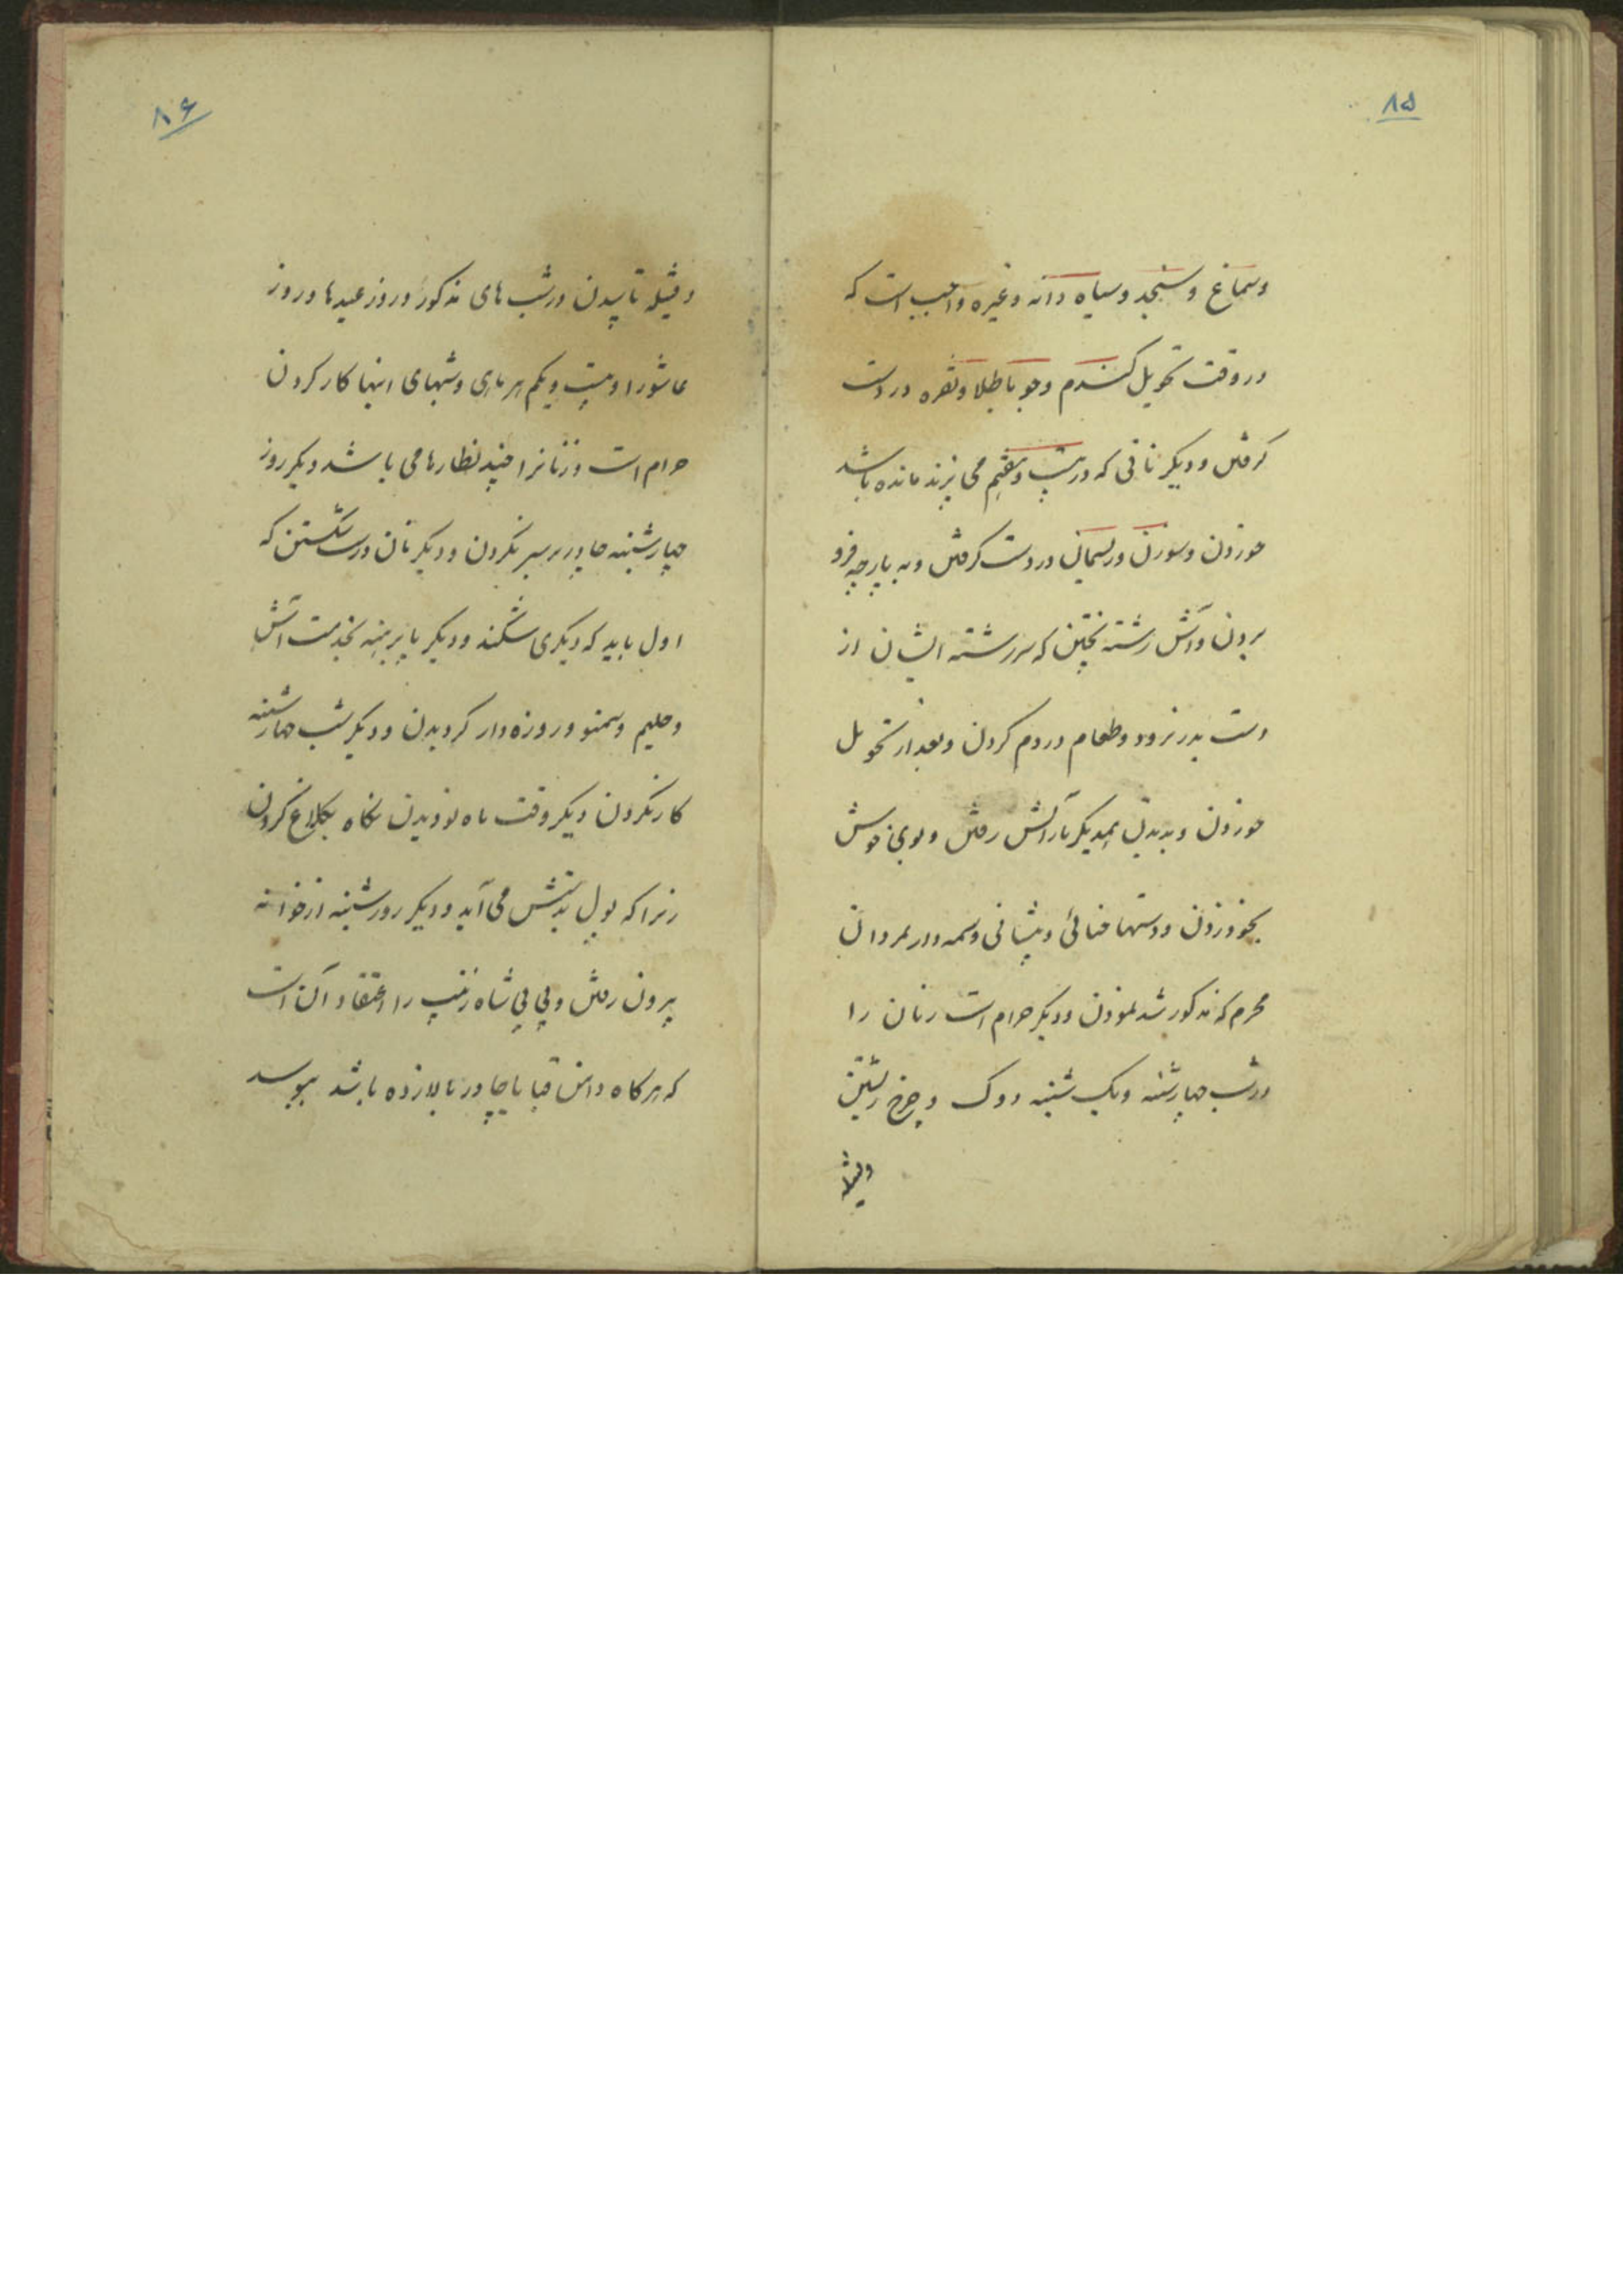 ۸۵
وسماغ و سنجد و سیاه دانه و غیره واجب است که
در وقت تحویل کندم و جو با طلا و نقره در دست
کرفتن و دیکر نانی که در بیست و هفتم می پزند مانده باشد
خوردن و سوزن و ریسمان در دست کرفتن و به پارچه فرو
بردن و آش رشته پختن که سر رشته ایشان از
دست بدر نرود و طعام در دم کردن و بعد از تحویل
خوردن و بدیدن همدیکر با آرایش رفتن و بوی خوش
بخود زدن و دستها حنائی و پیشانی وسمه دار بمردان
محرم که مذکور شد نمودن و دیکر حرام است زنان را
در شب چهارشنبه و یک شنبه دوک و چرخ رشتن
وفتیله
۸۶
و فتیله تابیدن در شب های مذکور و روز عیدها و روز
عاشورا و بیست و یکم هر ماهی و شبهای اینها کار کردن
حرام است و زنانرا چند نظارها می باشد دیکر روز
چهارشنبه چادر بر سر نکردن و دیکر نان درست شکستن که
اول باید که دیکری شکند و دیکر پا برهنه بخدمت آش
و حلیم و سمنو و روزه دار کردیدن و دیکر شب چهارشنبه
کار نکردن دیکر وقت ماه نو دیدن نکاه بکلاغ کردن
زیرا که پول بدستش می آید و دیکر روز شنبه از خوانه
بیرون رفتن و بی بی شاه زینب را اعتقاد آن است
که هرکاه دامن قبا یا چادر بالا زده باشد ببوسد